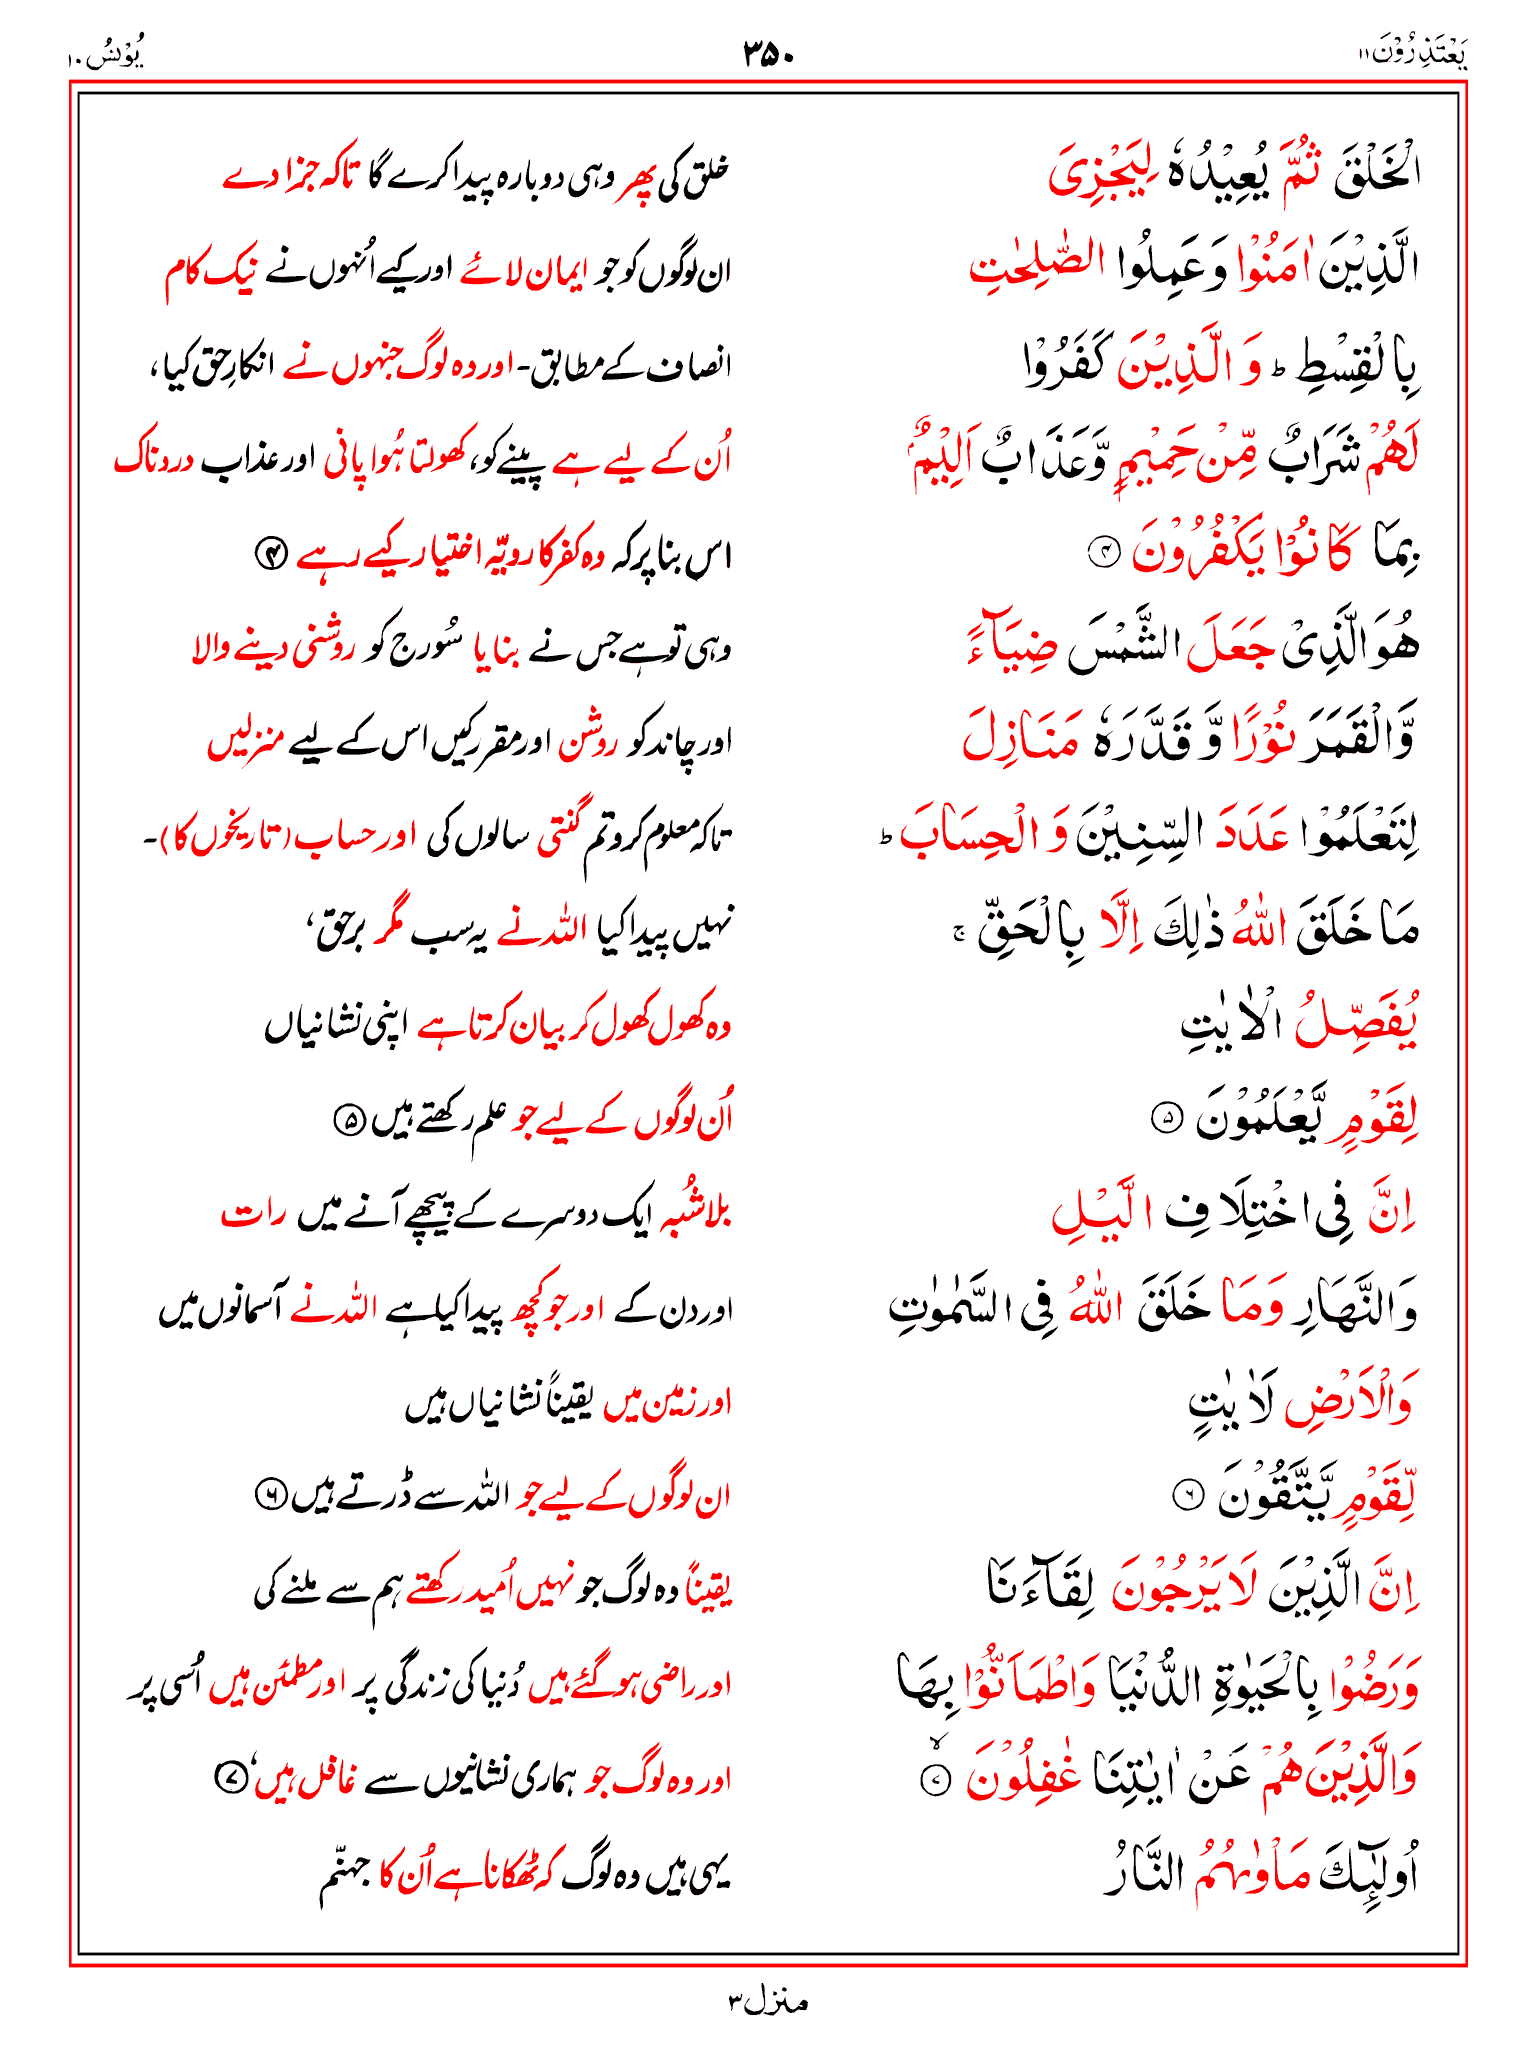 یَعْتَذِرُوْنَ ۱۱
۳۵۰
یُوْنُسُ ۱۰
الْخَلْقَ ثُمَّ یُعِیْدُهٗ لِیَجْزِیَ
خلق کی پھر وہی دوبارہ پیدا کرے گا تاکہ جزا دے
الَّذِیْنَ اٰمَنُوْا وَعَمِلُوا الصّٰلِحٰتِ
ان لوگوں کو جو ایمان لائے اور کیے اُنہوں نے نیک کام
بِالْقِسْطِ ؕ وَ الَّذِیْنَ كَفَرُوْا
انصاف کے مطابق۔ اور وہ لوگ جنہوں نے انکارِ حق کیا،
لَهُمْ شَرَابٌ مِّنْ حَمِیْمٍ وَّعَذَابٌ اَلِیْمٌۢ
اُن کے لیے ہے پینے کو، کھولتا ہُوا پانی اور عذاب دردناک
بِمَا كَانُوْا یَكْفُرُوْنَ ۴
اس بنا پر کہ وہ کفر کا رویّہ اختیار کیے رہے ۴
هُوَ الَّذِیْ جَعَلَ الشَّمْسَ ضِیَآءً
وہی تو ہے جس نے بنایا سُورج کو روشنی دینے والا
وَّالْقَمَرَ نُوْرًا وَّ قَدَّرَهٗ مَنَازِلَ
اور چاند کو روشن اور مقرر کیں اس کے لیے منزلیں
لِتَعْلَمُوْا عَدَدَ السِّنِیْنَ وَ الْحِسَابَ ؕ
تاکہ معلوم کرو تم گنتی سالوں کی اور حساب (تاریخوں کا)۔
مَا خَلَقَ اللّٰهُ ذٰلِكَ اِلَّا بِالْحَقِّ ۚ
نہیں پیدا کیا اللہ نے یہ سب مگر برحق،
یُفَصِّلُ الْاٰیٰتِ
وہ کھول کھول کر بیان کرتا ہے اپنی نشانیاں
لِقَوْمٍ یَّعْلَمُوْنَ ۵
اُن لوگوں کے لیے جو علم رکھتے ہیں ۵
اِنَّ فِی اخْتِلَافِ الَّیْلِ
بلاشُبہ ایک دوسرے کے پیچھے آنے میں رات
وَالنَّهَارِ وَمَا خَلَقَ اللّٰهُ فِی السَّمٰوٰتِ
اور دن کے اور جو کچھ پیدا کیا ہے اللہ نے آسمانوں میں
وَالْاَرْضِ لَاٰیٰتٍ
اور زمین میں یقیناً نشانیاں ہیں
لِّقَوْمٍ یَّتَّقُوْنَ ۶
ان لوگوں کے لیے جو اللہ سے ڈرتے ہیں ۶
اِنَّ الَّذِیْنَ لَا یَرْجُوْنَ لِقَآءَنَا
یقیناً وہ لوگ جو نہیں اُمید رکھتے ہم سے ملنے کی
وَرَضُوْا بِالْحَیٰوةِ الدُّنْیَا وَاطْمَاَنُّوْا بِهَا
اور راضی ہو گئے ہیں دُنیا کی زندگی پر اور مطمئن ہیں اُسی پر
وَالَّذِیْنَ هُمْ عَنْ اٰیٰتِنَا غٰفِلُوْنَ ۙ ۷
اور وہ لوگ جو ہماری نشانیوں سے غافل ہیں، ۷
اُولٰٓىِٕكَ مَاْوٰىهُمُ النَّارُ
یہی ہیں وہ لوگ کہ ٹھکانا ہے اُن کا جہنّم
منزل ۳